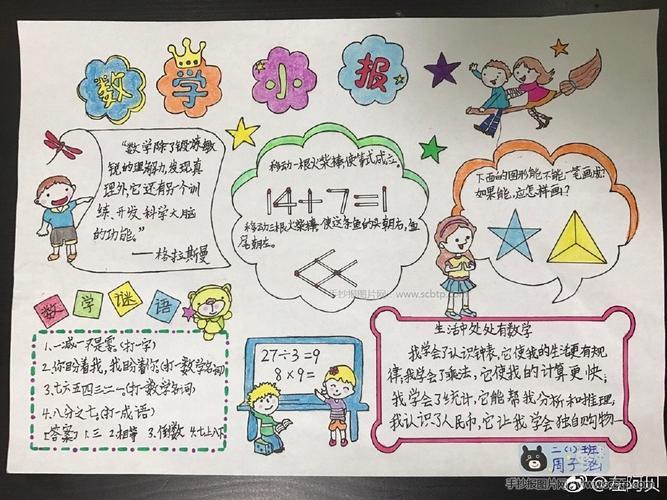 数学小报
"数学除了锻炼敏
锐的理解力,发现真
理外,它还有另一个训
练、开发、科学大脑
的功能。"
——格拉斯曼
移动一根火柴棒,使等式成立。
14+7=1
移动三根火柴棒,使这条鱼的头朝右,鱼
尾朝左。
下面的图形能不能一笔画成?
如果能,应怎样画?
数学谜语
1.一减一不是零(打一字)
2.你盼着我,我盼着你(打一数学名词)
3.七六五四三二一(打一数学名词)
4.八分之七(打一成语)
[答案]1.三 2.相等 3.倒数 4.七上八下
27÷3=9
8×9=
生活中处处有数学
我学会了认识钟表,它使我的生活更有规
律,我学会了乘法,它使我的计算更快;
我学会了统计,它能帮我分析和推理,
我认识了人民币,它让我学会独自购物…
二(1)班
周子涵
手抄报图片网 www.scbtp.com
手抄报图片网